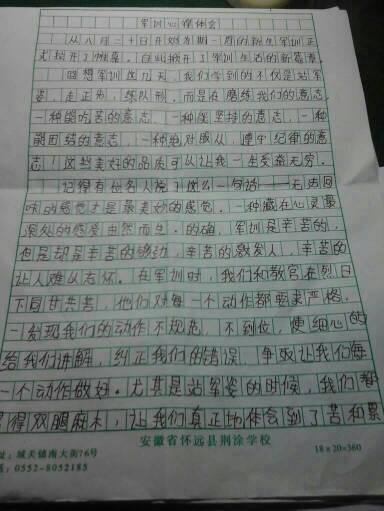 军训心得体会
从八月二十日开始为期一周的新生军训正
式拉开了帷幕。自此掀开了军训生活的新篇章
回想军训这几天，我们学到的不仅是站军
姿，走正步，练队形，而是在磨练我们的意志。
一种能吃苦的意志，一种能坚持的意志，一种
能团结的意志，一种绝对服从，遵守纪律的意
志！这些美好的品质可以让我一生受益无穷。
记得有位名人说了这么一句话——无法回
味的感觉才是最美妙的感觉。一种藏在心灵最
深处的感受由然而生。的确，军训是辛苦的，
但是却是辛苦的够劲，辛苦的激发人，辛苦的
让人难以忘怀。在军训时，我们和教官在烈日
下同甘共苦，他们对每一个动作都要求严格，
一发现我们的动作不规范，不到位，便细心的
给我们讲解，纠正我们的错误，争取让我们每
一个动作做好。尤其是站军姿的时候，我们都
觉得双腿麻木，让我们真正地体会到了苦和累
安徽省怀远县荆涂学校
址：城关镇南大街76号
话：0552-8052185
18×20=360